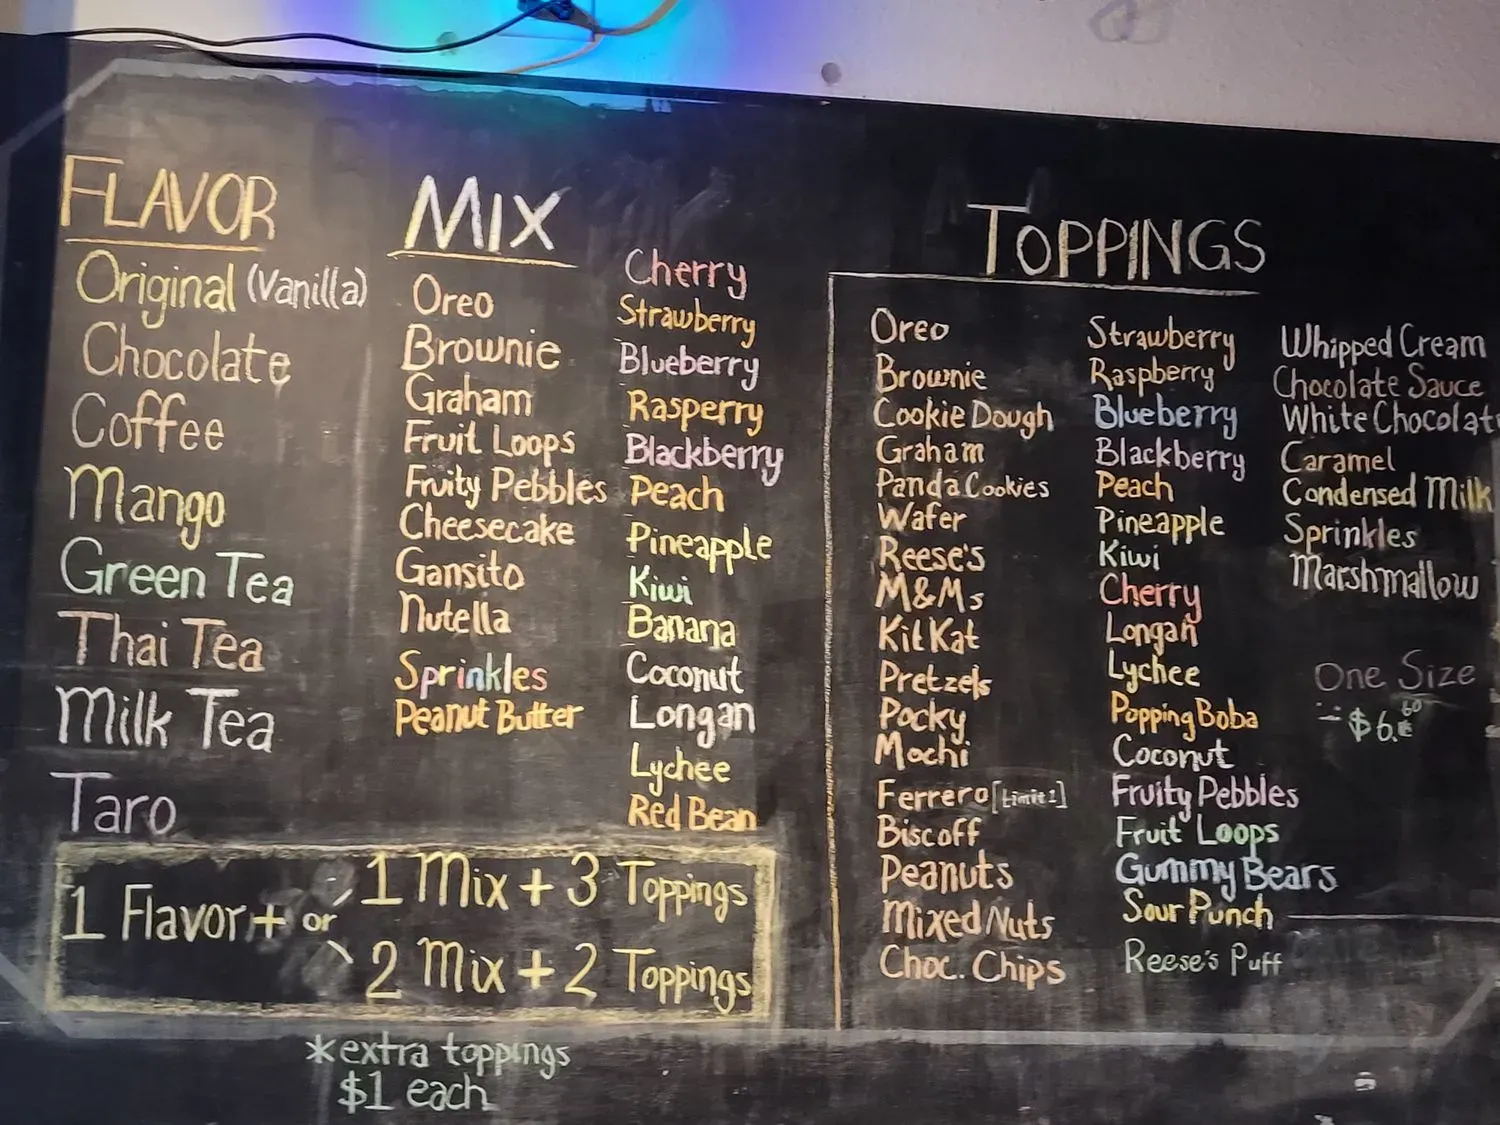 FLAVOR
Original (Vanilla)
Chocolate
Coffee
Mango
Green Tea
Thai Tea
Milk Tea
Taro
MIX
Oreo
Brownie
Graham
Fruit Loops
Fruity Pebbles
Cheesecake
Gansito
Nutella
Sprinkles
Peanut Butter
Cherry
Strawberry
Blueberry
Rasperry
Blackberry
Peach
Pineapple
Kiwi
Banana
Coconut
Longan
Lychee
Red Bean
1 Flavor + or
1 Mix + 3 Toppings
2 Mix + 2 Toppings
*extra toppings
$1 each
TOPPINGS
Oreo
Brownie
Cookie Dough
Graham
Panda Cookies
Wafer
Reese's
M&Ms
Kit Kat
Pretzels
Pocky
Mochi
Ferrero [Limit 1]
Biscoff
Peanuts
Mixed Nuts
Choc. Chips
Strawberry
Raspberry
Blueberry
Blackberry
Peach
Pineapple
Kiwi
Cherry
Longan
Lychee
Popping Boba
Coconut
Fruity Pebbles
Fruit Loops
Gummy Bears
Sour Punch
Reese's Puff
Whipped Cream
Chocolate Sauce
White Chocolat
Caramel
Condensed Milk
Sprinkles
Marshmallow
One Size
$6.60